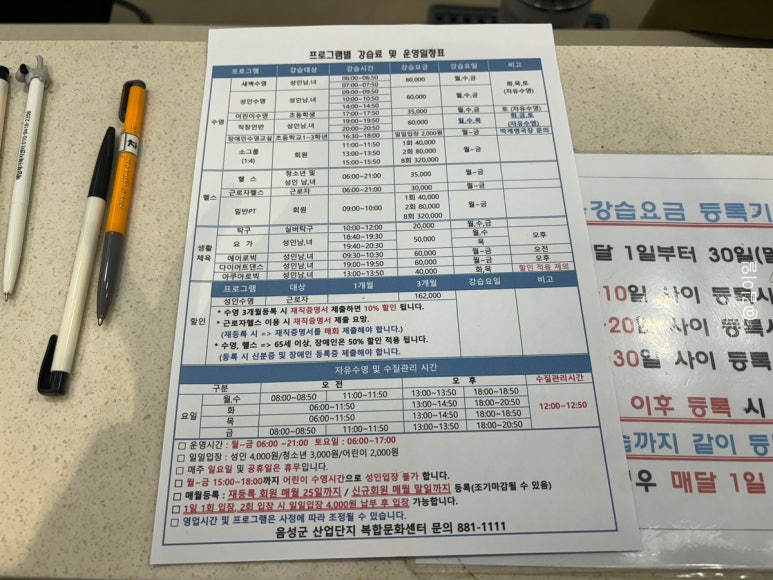 프로그램별 강습료 및 운영일정표
프로그램 강습대상 강습시간 강습요금 강습요일 비고
수영
새벽수영 성인남,녀 06:00~06:50 07:00~07:50 60,000 월,수,금 화,목,토 (자유수영)
성인수영 성인남,녀 09:00~09:50 10:00~10:50 14:00~14:50 60,000 월,수,금
어린이수영 초등학생 17:00~17:50 35,000 월,수,금 토 (자유수영)
직장인반 성인남,녀 19:00~19:50 20:00~20:50 60,000 월,수,목 화,금,토 (자유수영)
장애인수영교실 초등학교1~3학년 16:30~18:00 일일입장 2,000원 월~금 박계명국장 문의
소그룹 (1:4) 회원 11:00~11:50 13:00~13:50 15:00~15:50 1회 40,000 2회 80,000 8회 320,000 월~금
헬스
헬 스 청소년 및 성인 남,녀 06:00~21:00 35,000 월~금
근로자헬스 근로자 06:00~21:00 30,000 월~금
일반PT 회원 09:00~10:00 1회 40,000 2회 80,000 8회 320,000 월~금
생활체육
탁구 실버탁구 10:00~12:00 20,000 월,수,금
요 가 성인남,녀 18:40~19:30 19:40~20:30 50,000 월,수 목 오후
에어로빅 성인남,녀 09:30~10:30 60,000 월~금 오전
다이어트댄스 성인남,녀 19:00~19:50 60,000 월~금 오후
아쿠아로빅 성인남,녀 13:00~13:50 40,000 화,목 할인 적용 제외
할인
프로그램 대상 1개월 3개월 강습요일 비고
성인수영 근로자 - 162,000
* 수영 3개월등록 시 재직증명서 제출하면 10% 할인 됩니다.
* 근로자헬스 이용 시 재직증명서 제출 요망.
(재등록 시 => 재직증명서를 매회 제출해야 합니다.)
* 수영, 헬스 => 65세 이상, 장애인은 50% 할인 적용 됩니다.
(등록 시 신분증 및 장애인 등록증 제출해야 합니다.)
자유수영 및 수질관리 시간
구분 오 전 오 후 수질관리시간
요일
월,수 08:00~08:50 11:00~11:50 13:00~13:50 18:00~18:50 12:00~12:50
화 06:00~11:50 13:00~14:50 18:00~20:50
목 06:00~11:50 13:00~14:50 18:00~18:50
금 08:00~08:50 11:00~11:50 13:00~13:50 18:00~20:50
□ 운영시간 : 월~금 06:00 ~21:00 토요일 : 06:00~17:00
□ 일일입장 : 성인 4,000원/청소년 3,000원/어린이 2,000원
□ 매주 일요일 및 공휴일은 휴무입니다.
□ 월~금 15:00~18:00까지 어린이 수영시간으로 성인입장 불가 합니다.
□ 매월등록 : 재등록 회원 매월 25일까지 / 신규회원 매월 말일까지 등록(조기마감될 수 있음)
□ 1일 1회 입장, 2회 입장 시 일일입장 4,000원 납부 후 입장 가능합니다.
□ 영업시간 및 프로그램은 사정에 따라 조정될 수 있습니다.
음성군 산업단지 복합문화센터 문의 881-1111
강습요금 등록기
달 1일부터 30일(말
10일 사이 등록시
20일 사이 등록시
30일 사이 등록
이후 등록 시
까지 같이 등
우 매달 1일